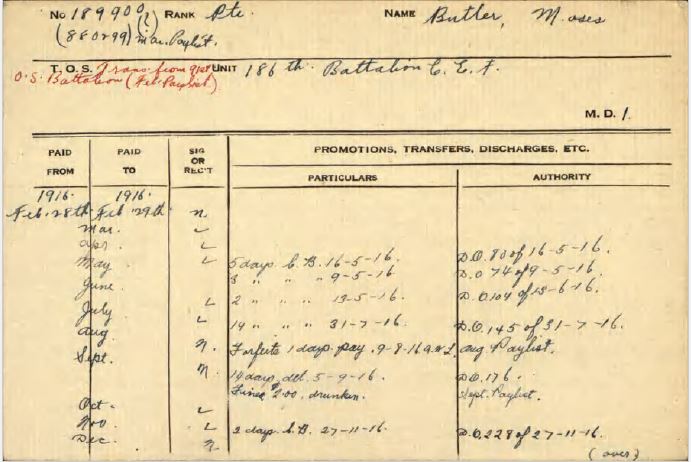 No 189900 (?) RANK Pte. NAME Butler, Moses
(880299) Mar. Paylist.
T.O.S. Trans. from 91st UNIT 186th Battalion C.E.F.
O.S. Battalion (Feb. Paylist)
M. D. 1.
PAID FROM PAID TO SIG OR REC'T PROMOTIONS, TRANSFERS, DISCHARGES, ETC.
PARTICULARS AUTHORITY
1916. 1916.
Feb. 28th Feb. 29th n.
Mar. ✓
Apr. ✓
May ✓ 5 days C.B. 16-5-16. D.O. 80 of 16-5-16.
3 " " " 9-5-16. D.O. 74 of 9-5-16.
June 2 " " 13-5-16. D.O. 104 of 13-6-16.
July ✓
Aug ✓ 14 " " " 31-7-16. D.O. 145 of 31-7-16.
Sept. n. Forfeits 1 days pay. 9-8-16 A.W.L. Aug Paylist.
n. 14 days det. 5-9-16. D.O. 176.
Fined $2.00. drunken. Sept. Paylist.
Oct. ✓
Nov. ✓ 2 days C.B. 27-11-16. D.O. 228 of 27-11-16.
Dec. n
(over)